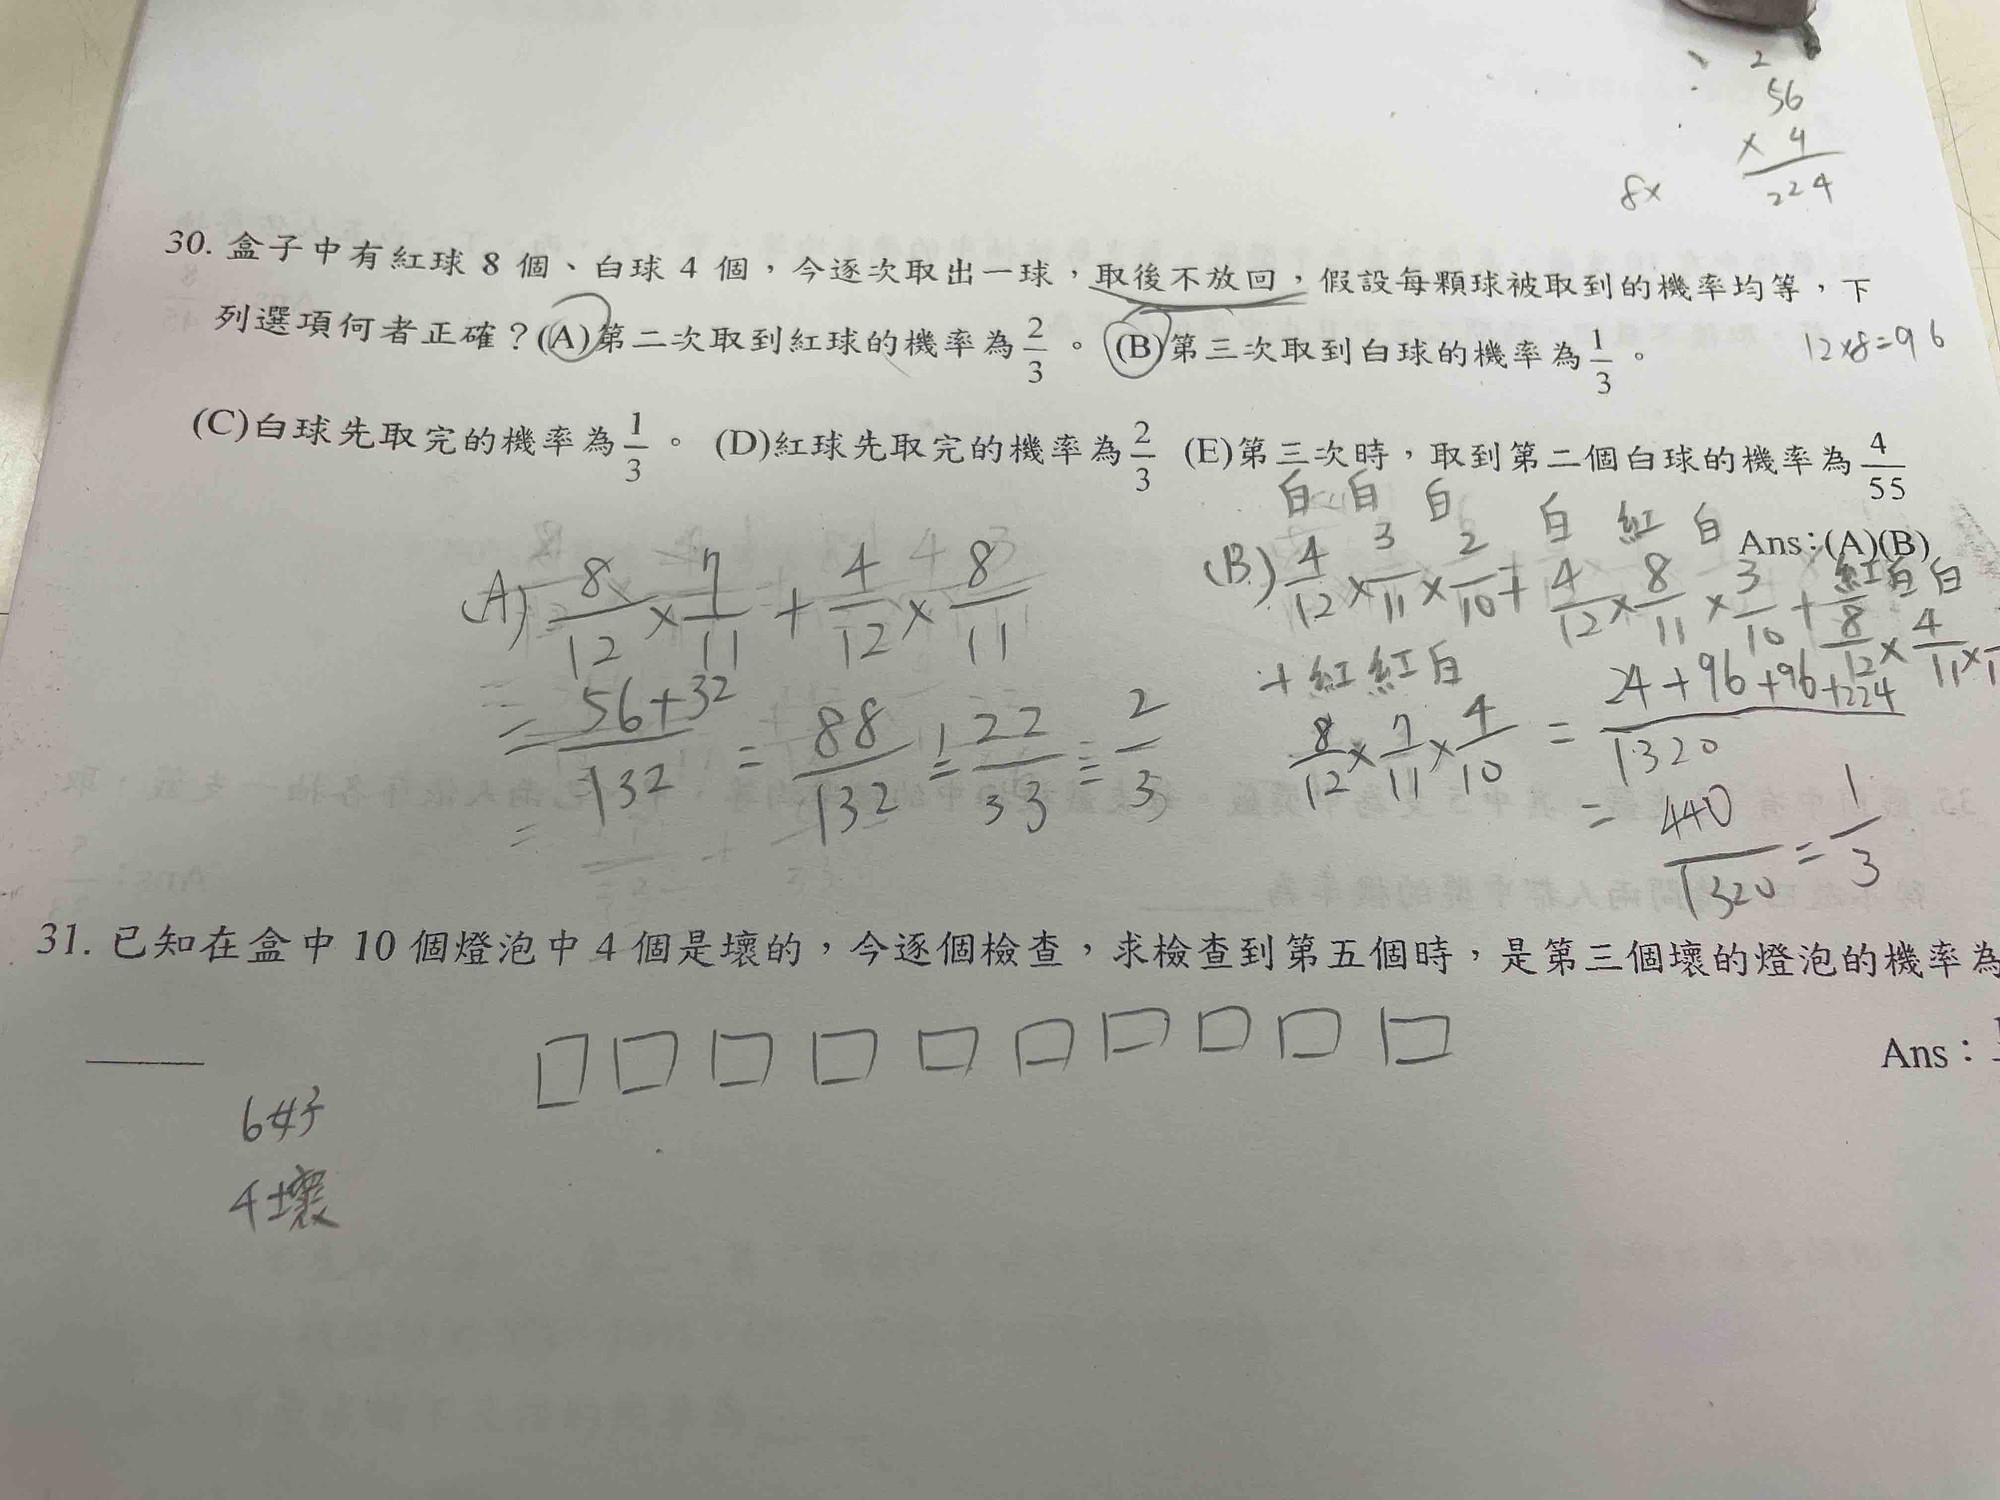 2
56
× 4
224
8×
30. 盒子中有紅球 8 個、白球 4 個，今逐次取出一球，取後不放回，假設每顆球被取到的機率均等，下
列選項何者正確？(A)第二次取到紅球的機率為 2/3 。 (B)第三次取到白球的機率為 1/3 。
12×8=96
(C)白球先取完的機率為 1/3 。 (D)紅球先取完的機率為 2/3 (E)第三次時，取到第二個白球的機率為 4/55
Ans：(A)(B)
(A) 8/12 × 7/11 + 4/12 × 8/11
= 56+32/132 = 88/132 = 22/33 = 2/3
白 白 白 白 紅 白 紅白白
(B) 4/12 × 3/11 × 2/10 + 4/12 × 8/11 × 3/10 + 8/12 × 4/11 ×
+ 紅紅白
8/12 × 7/11 × 4/10 = 24+96+96+224/1320
= 440/1320 = 1/3
31. 已知在盒中 10 個燈泡中 4 個是壞的，今逐個檢查，求檢查到第五個時，是第三個壞的燈泡的機率為
Ans：
6好
4壞